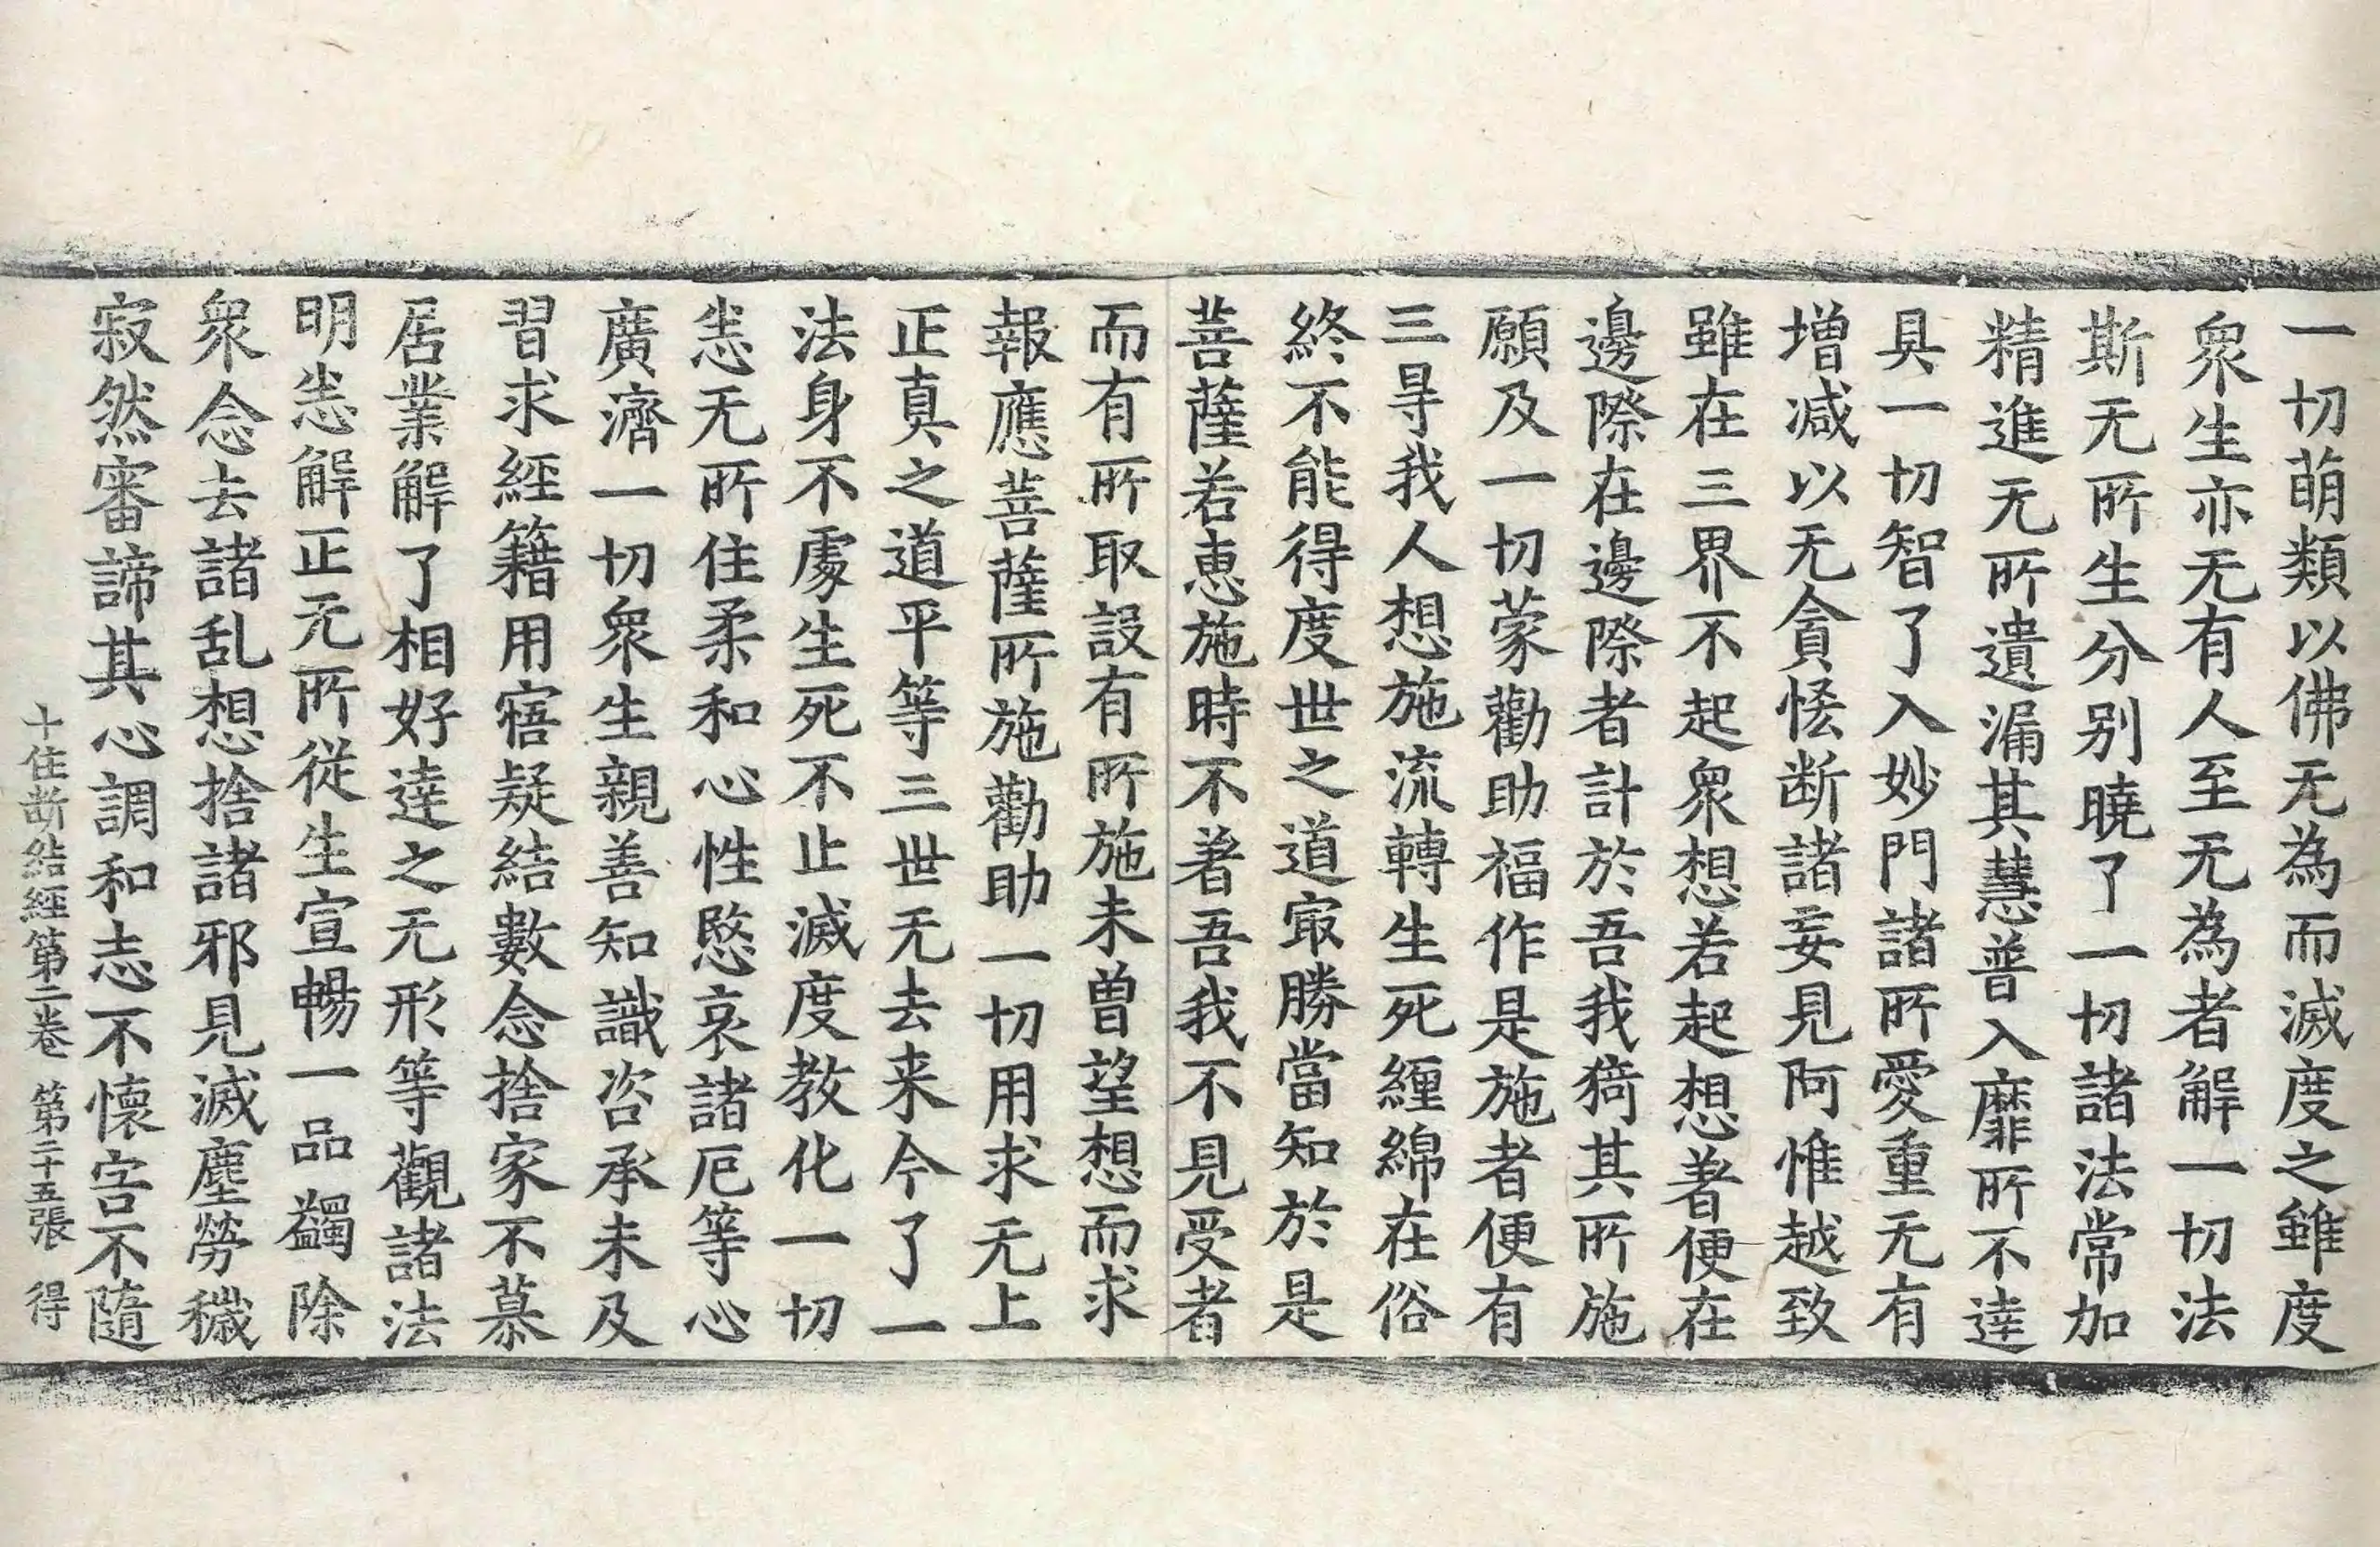 一切萌類以佛无為而滅度之雖度
衆生亦无有人至无為者解一切法
斯无所生分别曉了一切諸法常加
精進无所遺漏其慧普入靡所不達
具一切智了入妙門諸所愛重无有
增減以无貪恡断諸妄見阿惟越致
雖在三界不起衆想若起想著便在
邊際在邊際者計於吾我猗其所施
願及一切蒙勸助福作是施者便有
三㝵我人想施流轉生死纏綿在俗
終不能得度世之道㝡勝當知於是
菩薩若恵施時不著吾我不見受者
而有所取設有所施未曽望想而求
報應菩薩所施勸助一切用求无上
正真之道平等三世无去来今了一
法身不處生死不止滅度教化一切
恙无所住柔和心性愍哀諸厄等心
廣濟一切衆生親善知識咨承未及
習求經籍用寤疑結數念捨家不慕
居業解了相好達之无形等觀諸法
明恙解正无所從生宣暢一品蠲除
衆念去諸乱想捨諸邪見滅塵勞穢
寂然審諦其心調和志不懷害不隨
十住断結經第二卷 第二十五張 得